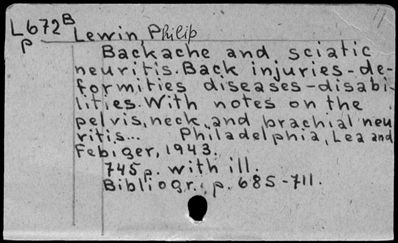 L672B
p
Lewin, Philip
Backache and sciatic
neuritis. Back injuries-de-
formities diseases-disabi-
lities. With notes on the
pelvis, neck, and brachial neu
ritis... Philadelphia, Lea and
Febiger, 1943.
745p. with ill.
Bibliogr.: p. 685-711.